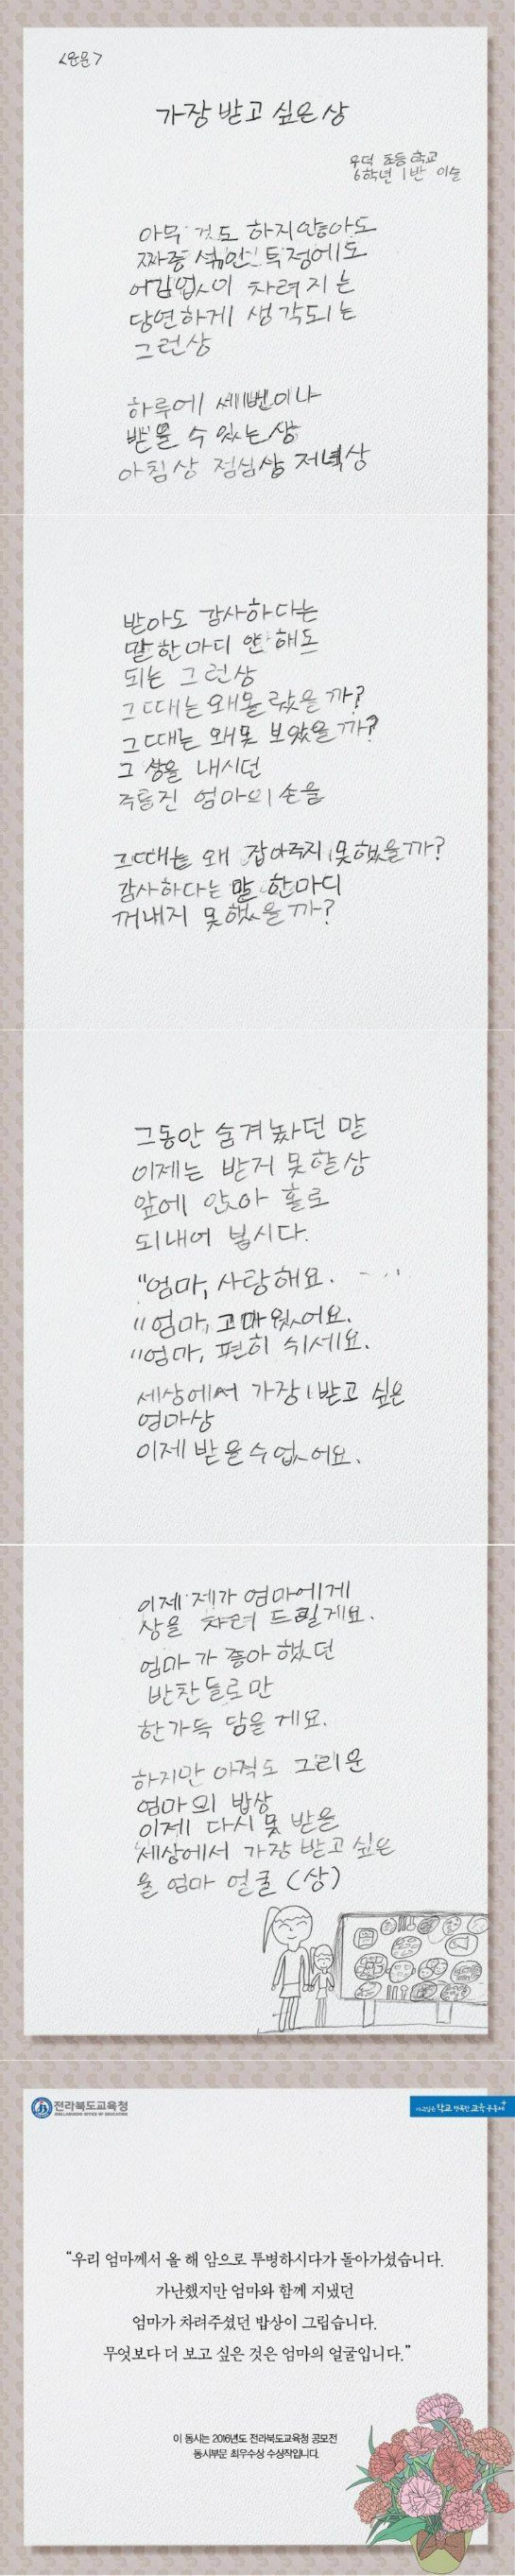 <운문>
가장 받고 싶은 상
우덕 초등학교
6학년 1반 이슬
아무 것도 하지않아도
짜증 섞인 투정에도
어김없이 차려지는
당연하게 생각되는
그런상
하루에 세번이나
받을 수 있는상
아침상 점심상 저녁상
받아도 감사하다는
말 한마디 안 해도
되는 그런상
그때는 왜몰랐을까?
그때는 왜못 보았을까?
그 상을 내시던
주름진 엄마의 손을
그때는 왜 잡아주지 못했을까?
감사하다는 말 한마디
꺼내지 못했을까?
그동안 숨겨놨던 말
이제는 받지 못할상
앞에 앉아 홀로
되내어 봅시다.
"엄마, 사랑해요.
"엄마, 고마웠어요.
"엄마, 편히 쉬세요.
세상에서 가장 받고 싶은
엄마상
이제 받을수없어요.
이제 제가 엄마에게
상을 차려 드릴게요.
엄마가 좋아했던
반찬들로만
한가득 담을게요.
하지만 아직도 그리운
엄마의 밥상
이제 다시 못 받을
세상에서 가장 받고 싶은
울 엄마 얼굴 (상)
전라북도교육청
JEOLLABUKDO OFFICE OF EDUCATION
“우리 엄마께서 올 해 암으로 투병하시다가 돌아가셨습니다.
가난했지만 엄마와 함께 지냈던
엄마가 차려주셨던 밥상이 그립습니다.
무엇보다 더 보고 싶은 것은 엄마의 얼굴입니다.”
이 동시는 2016년도 전라북도교육청 공모전
동시부문 최우수상 수상작입니다.